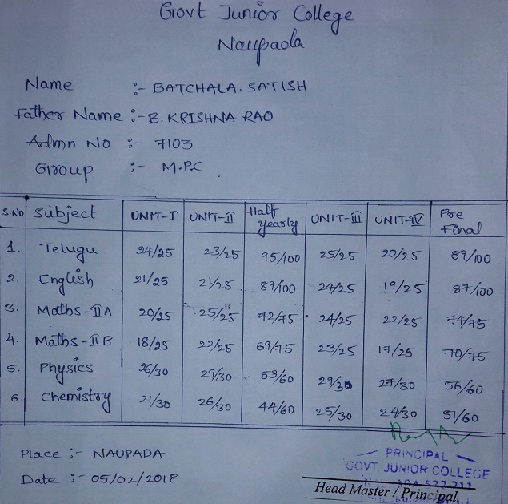 Govt Junior College
Naupada
Name :- BATCHALA. SATISH
Father Name :- B. KRISHNA RAO
Admn No : 7103
Group :- M.P.C
S.No Subject UNIT-I UNIT-II Half Yearly UNIT-iii UNIT-IV Pre Final
1. Telugu 24/25 23/25 95/100 25/25 89/100
2. English 21/25 89/100 24/25 19/25 87/100
3. Maths-IIA 20/25 25/25 72/75 24/25 22/25
4. Maths-IIB 18/25 22/25 69/75 23/25 19/25 70/75
5. Physics 26/30 29/30 59/60 56/60
6 Chemistry 26/30 44/60 25/30 24/30 51/60
Place :- NAUPADA
Date :- 05/02/2018
PRINCIPAL
GOVT JUNIOR COLLEGE
Head Master / Principal